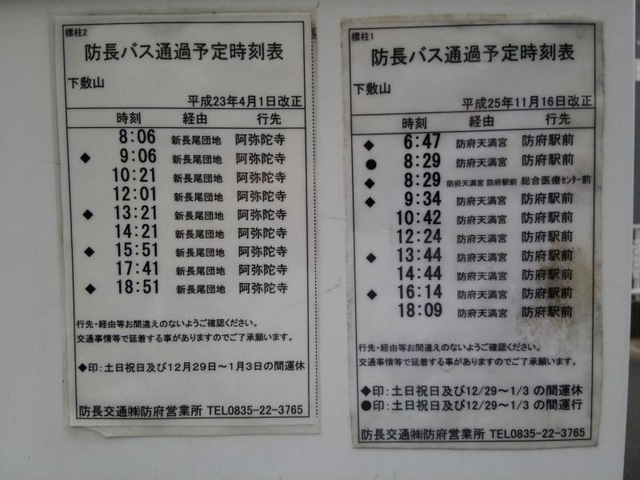 標柱2
防長バス通過予定時刻表
下敷山
平成23年4月1日改正
時刻 経由 行先
8:06 新長尾団地 阿弥陀寺
◆ 9:06 新長尾団地 阿弥陀寺
10:21 新長尾団地 阿弥陀寺
12:01 新長尾団地 阿弥陀寺
◆ 13:21 新長尾団地 阿弥陀寺
14:21 新長尾団地 阿弥陀寺
◆ 15:51 新長尾団地 阿弥陀寺
17:41 新長尾団地 阿弥陀寺
◆ 18:51 新長尾団地 阿弥陀寺
行先・経由等お間違えのないようご確認ください。
交通事情等で延着する事がありますのでご了承願います。
◆印:土日祝日及び12月29日～1月3日の間運休
防長交通㈱防府営業所 TEL0835-22-3765
標柱1
防長バス通過予定時刻表
下敷山
平成25年11月16日改正
時刻 経由 行先
◆ 6:47 防府天満宮 防府駅前
● 8:29 防府天満宮 防府駅前
◆ 8:29 防府天満宮 防府駅前 総合医療センター前
◆ 9:34 防府天満宮 防府駅前
10:42 防府天満宮 防府駅前
12:24 防府天満宮 防府駅前
◆ 13:44 防府天満宮 防府駅前
14:44 防府天満宮 防府駅前
◆ 16:14 防府天満宮 防府駅前
18:09 防府天満宮 防府駅前
行先・経由等お間違えのないようご確認ください。
交通事情等で延着する事がありますのでご了承願います。
◆印:土日祝日及び12/29～1/3 の間運休
●印:土日祝日及び12/29～1/3 の間運行
防長交通㈱防府営業所 TEL0835-22-3765